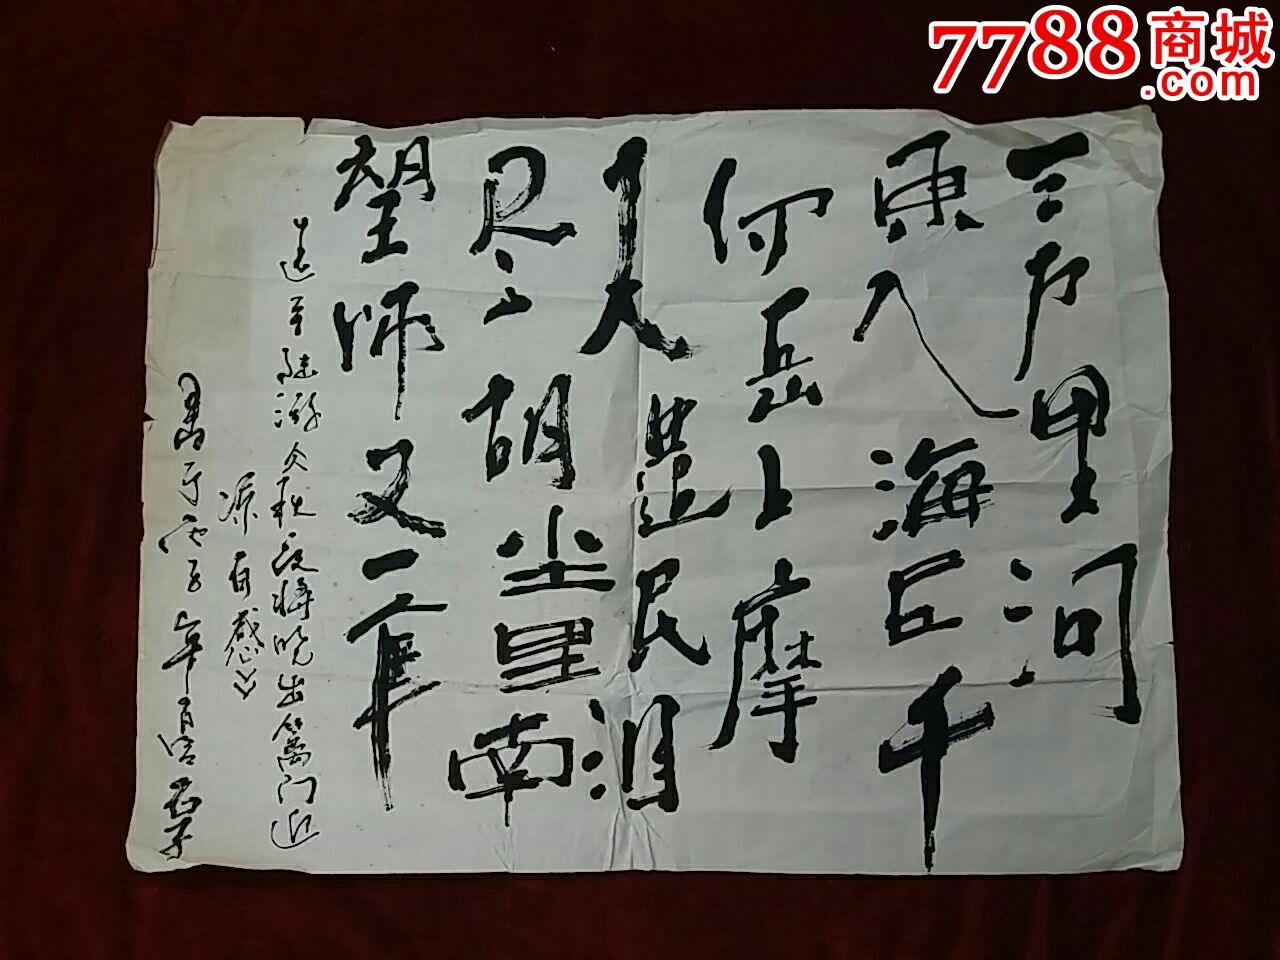 7788商城
.com
三万里河
東入海五千
仞岳上摩
天遗民泪
尽胡尘里南
望师又一年
陆游秋夜将晓出篱门迎
凉有感》
书于丙子年